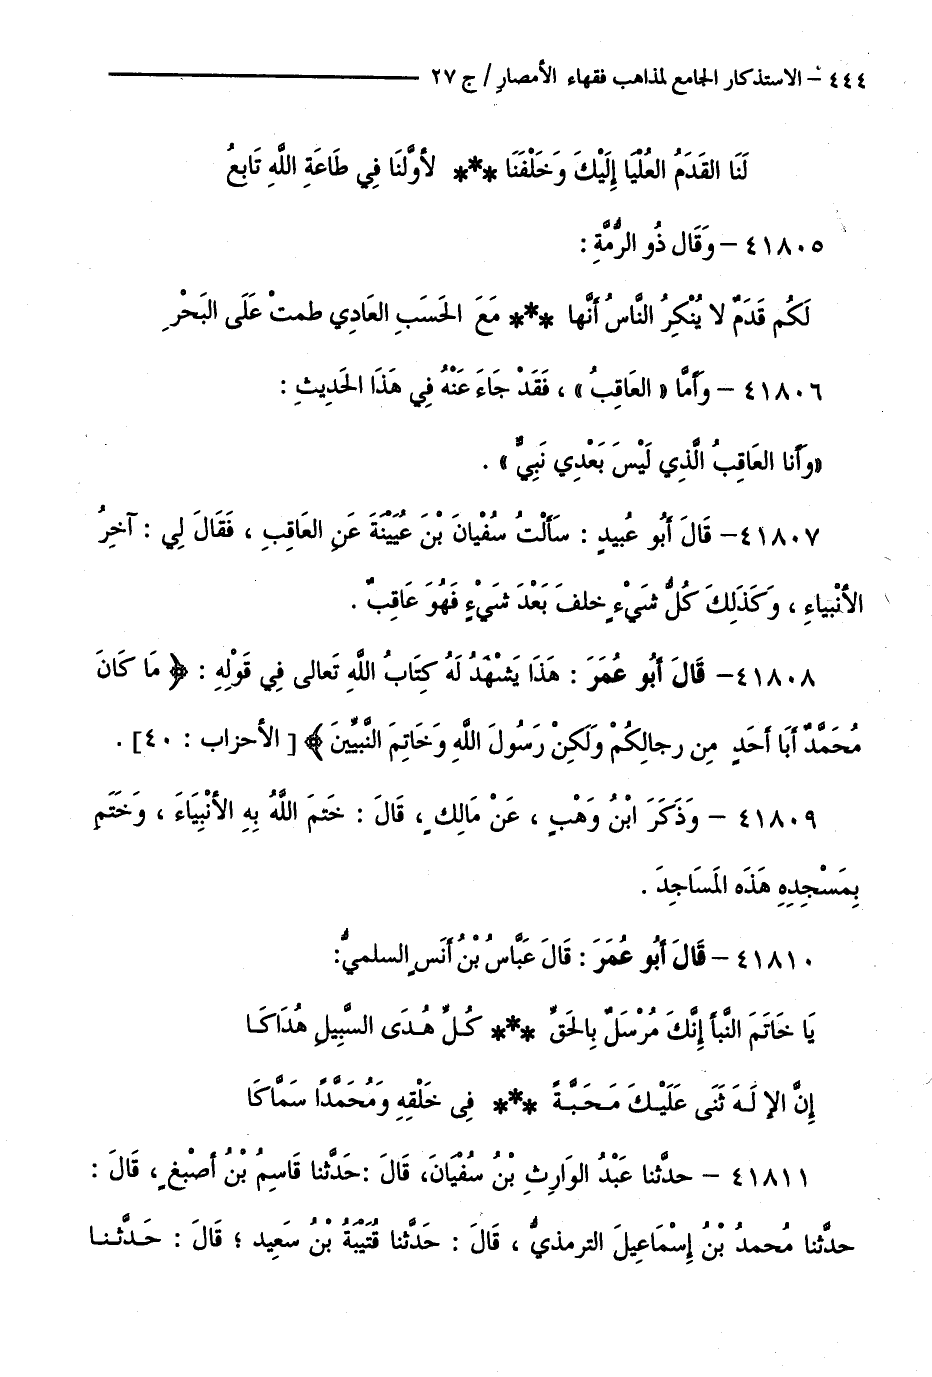 ٤٤٤ – الاستذكار الجامع لمذاهب فقهاء الأمصارِ / ج ٢٧
لَنَا القَدَمُ العُلْيَا إِلَيْكَ وَخَلْفَنَا *** لأوَّلنَا فِي طَاعَةِ اللَّهِ تَابعُ
٤١٨٠٥ – وَقَال ذُو الرُّمَّةِ :
لَكُم قَدَمٌ لا يُنْكِرُ النَّاسُ أَنَّها *** مَعَ الحَسَبِ العَادِي طمتْ عَلَى البَحْرِ
٤١٨٠٦ – وَأمَّا « العَاقِبُ » ، فَقَدْ جَاءَ عَنْهُ فِي هَذَا الحَدِيثِ :
«وَأنا العَاقِبُ الَّذِي لَيْسَ بَعْدِي نَبِيٌّ » .
٤١٨٠٧– قَالَ أَبُو عُبيدٍ : سَأَلْتُ سُفْيانَ بْنَ عُيَيْنَةَ عَنِ العَاقِبِ ، فَقَالَ لِي : آخِرُ
الأنْبياءِ ، وَكَذَلِكَ كُلُّ شَيْءٍ خلفَ بَعْدَ شَيْءٍ فَهُوَ عَاقِبٌ .
٤١٨٠٨– قَالَ أَبُو عُمَرَ : هَذَا يَشْهَدُ لَهُ كِتَابُ اللَّهِ تَعالى فِي قَوْلِهِ : ﴿ مَا كَانَ
مُحَمَّدٌ أَبَا أَحَدٍ مِن رجالِكُمْ وَلَكِنْ رَسُولَ اللَّهِ وَخَاتِمَ النَّبِيِّينَ ﴾ [ الأحزاب : ٤٠] .
٤١٨٠٩ – وَذَكَرَ ابْنُ وَهْبٍ ، عَنْ مَالِكٍ ، قَالَ : خَتمَ اللَّهُ بِهِ الأنْبِيَاءَ ، وَخَتَمِ
بِمَسْجِدِهِ هَذَه المَسَاجِدَ .
٤١٨١٠ – قَالَ أَبُو عُمَرَ : قَالَ عَبَّاسُ بْنُ أَنَسٍ السلميُّ:
يَا خَاتَمَ النَّبأ إِنَّكَ مُرْسَلٌ بِالحَقِّ *** كُلٌّ هُدَى السَّبِيلِ هُدَاكَا
إِنَّ الإِلَهَ ثَنَى عَلَيْكَ مَحَبَّةً *** فِي خَلْقِهِ وَمُحَمَّدًا سَمَّاكَا
٤١٨١١ – حدَّثنا عَبْدُ الوَارِثِ بْنُ سُفْيَانَ، قَالَ :حَدَّثنا قَاسِمُ بْنُ أصْبغٍ، قَالَ :
حدَّثنا مُحمدُ بْنُ إِسْمَاعِيلَ الترمذيُّ ، قَالَ : حَدَّثنا قُتَيْبَةُ بْنُ سَعِيد ؛ قَالَ : حَدَّثنا